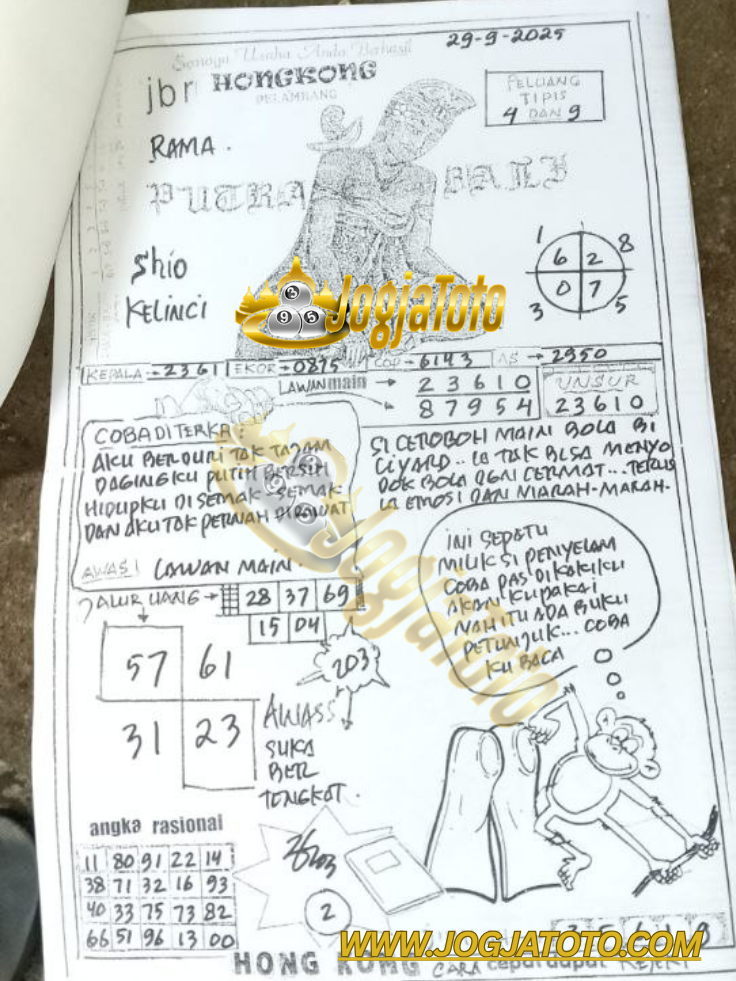 Semoga Usaha Anda Berhasil
29-9-2025
jbr HONGKONG
PELAMBANG
PELUANG
TIPIS
4 DAN 9
RAMA.
PUTRA BALI
1 6 2 8
3 0 7 5
Shio
KELINCI
JogjaToto
KEPALA → 2361 EKOR → 0875 COP → 6143 AS → 2950
LAWAN main → 23610
87954
UNSUR
23610
COBA DITERKA:
AKU BERDURI TAK TAJAM
DAGINGKU PUTIH BERSIH
HIDUPKU DI SEMAK-SEMAK
DAN AKU TAK PERNAH DIRAWAT
AWAS! LAWAN MAIN.
SI CEROBOH MAIN BOLA BI
CIYARD.. IA TAK BISA MENYO
DOK BOLA DGN CERMAT... TERUS
IA EMOSI DAN MARAH-MARAH.
INI SEPATU
MILIK SI PENYELAM
COBA PAS DI KAKIKU
AKAN KUPAKAI
NAH ITU ADA BUKU
PETUNJUK... COBA
KU BACA
JALUR UANG → 28 37 69
15 04
57 61
31 23
203
AWASS
SUKA
BER
TONGKAT.
JogjaToto
angka rasional
11 80 91 22 14
38 71 32 16 93
40 33 75 73 82
66 51 96 13 00
2
WWW.JOGJATOTO.COM
HONG KONG CARA cepat dapat REJEKI